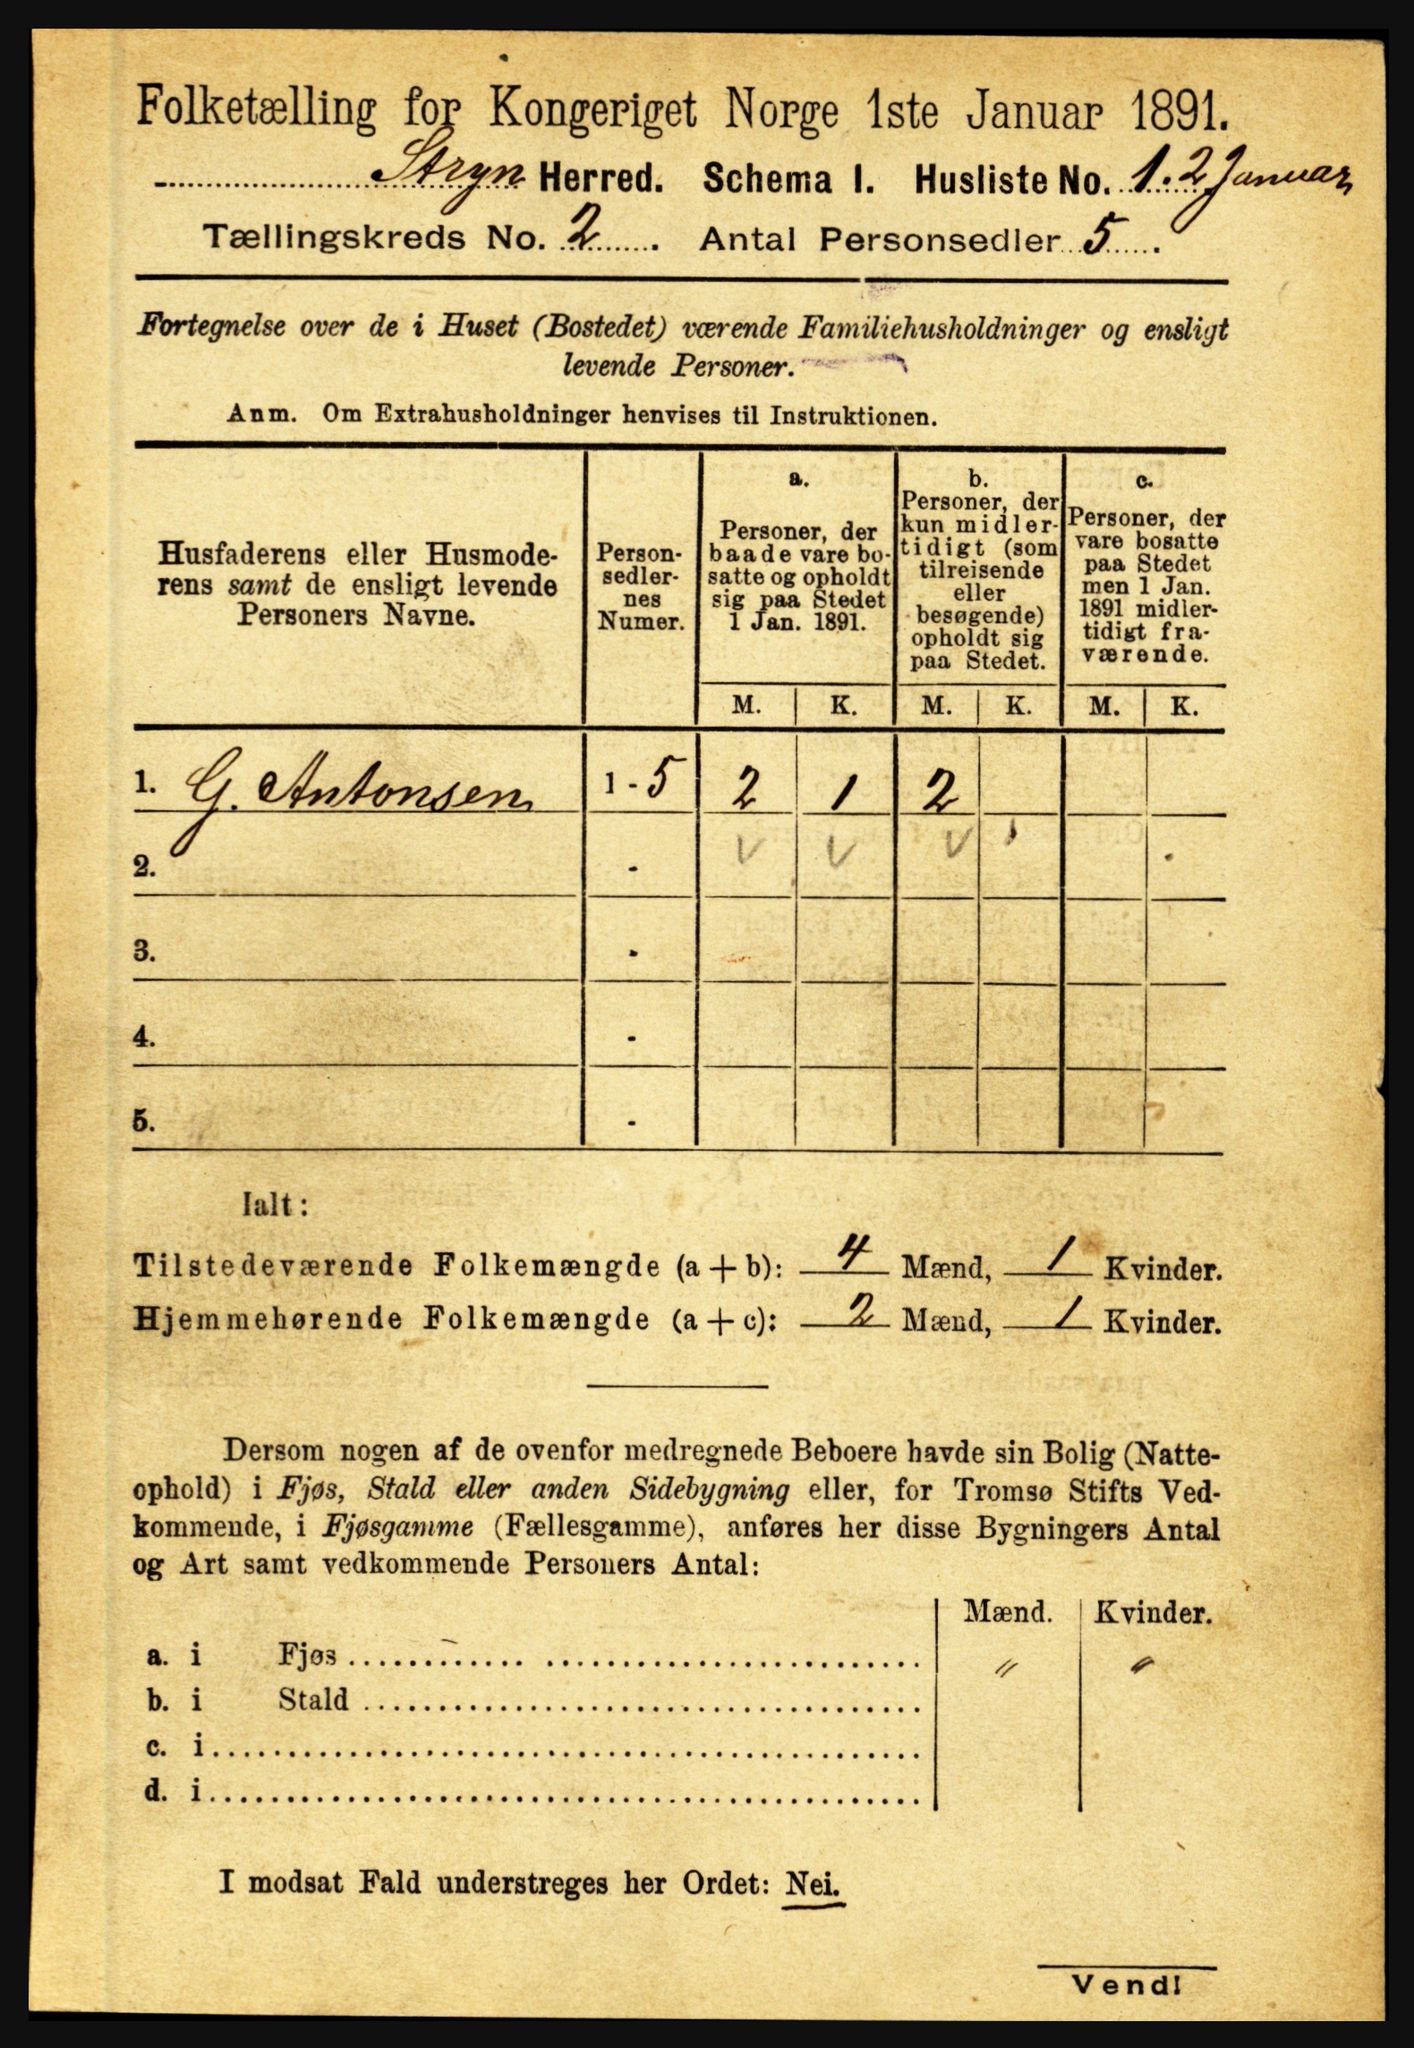 Folketælling for Kongeriget Norge 1ste Januar 1891.
Stryn Herred. Schema I. Husliste No. 1. 2 Januar
Tællingskreds No. 2. Antal Personsedler 5.
Fortegnelse over de i Huset (Bostedet) værende Familiehusholdninger og ensligt
levende Personer.
Anm. Om Extrahusholdninger henvises til Instruktionen.
Husfaderens eller Husmode-
rens samt de ensligt levende
Personers Navne.
Person-
sedler-
nes
Numer.
a.
Personer, der
baade vare bo-
satte og opholdt
sig paa Stedet
1 Jan. 1891.
b.
Personer, der
kun midler-
tidigt (som
tilreisende
eller
besøgende)
opholdt sig
paa Stedet.
c.
Personer, der
vare bosatte
paa Stedet
men 1 Jan.
1891 midler-
tidigt fra-
værende.
M. K. M. K. M. K.
1. G. Antonsen 1 - 5 2 1 2
2. - v v v
3. -
4. -
5. -
Ialt:
Tilstedeværende Folkemængde (a + b): 4 Mænd, 1 Kvinder.
Hjemmehørende Folkemængde (a + c): 2 Mænd, 1 Kvinder.
Dersom nogen af de ovenfor medregnede Beboere havde sin Bolig (Natte-
ophold) i Fjøs, Stald eller anden Sidebygning eller, for Tromsø Stifts Ved-
kommende, i Fjøsgamme (Fællesgamme), anføres her disse Bygningers Antal
og Art samt vedkommende Personers Antal:
Mænd. Kvinder.
a. i Fjøs " "
b. i Stald
c. i
d. i
I modsat Fald understreges her Ordet: Nei.
Vend!